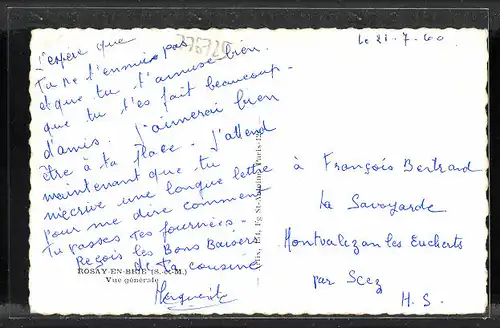 J'espère que
Tu ne t'ennuie pas
et que tu t'amuse bien.
que tu t'es fait beaucoup
d'amis. J'aimerai bien
être à ta place. J'attend
maintenant que tu
m'écrive une longue lettre
pour me dire comment
Tu passes tes journées.
Reçois les Bons Baisers
de ta cousine
Marguerite
ROSAY-EN-BRIE (S.-et-M.)
Vue générale
le 21-7-60
à François Bertrand
La Savoyarde
Montvalezan les Eucherts
par Scez
H. S.